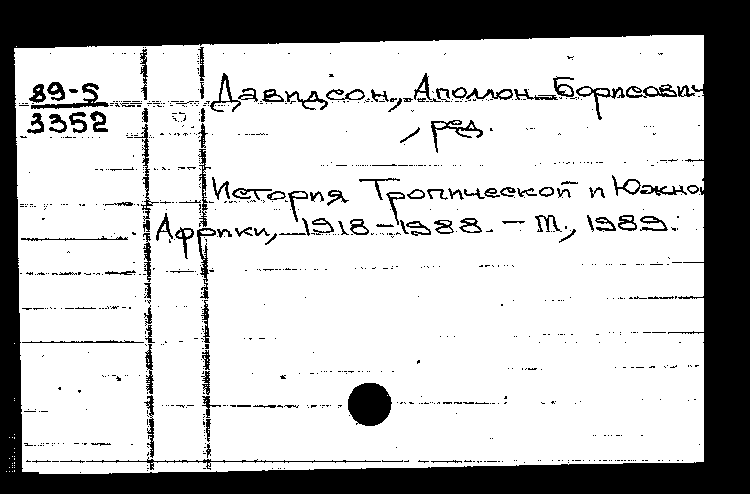 89-5
3352
Давидсон, Аполлон Борисович
, ред.
История Тропической и Южной
Африки, 1918-1988. - М., 1989.